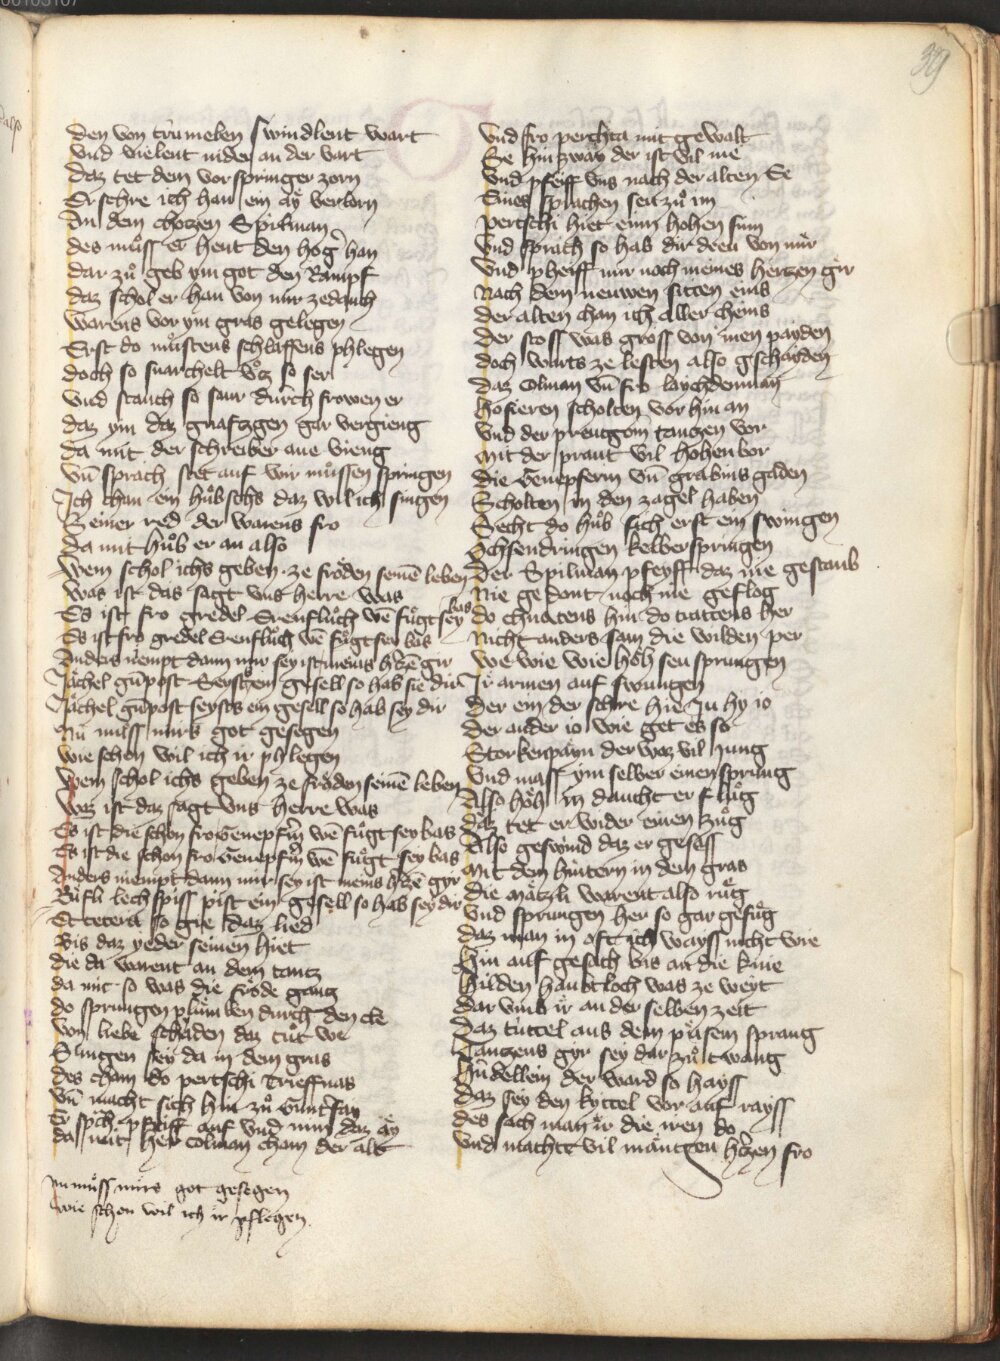 39
den von trumelen swindlent wart
vnd vielent nider an der vart
daz tet dem vorspringer zorn
Er schre ich han ein aÿ verlorn
An dem chotzen Spilman
des müss er heut den hog han
dar zů geb ym got den Rampf
daz schol er han von mir zedanch
Warens vor ym gras gelegen
Erst do můstens schlaffens phlegen
doch so snarchelt so ser
vnd stauch so saur durch frowen er
daz ym daz grafzgen gar vergieng
da mit der schreiber ane vieng
vn̄ sprach stet auf wir müssen springen
Ich chan ein hübschs daz wil ich singen
Seiner red der warens fro
da mit hůb er an also
Wem schol ichs geben ze fröden seinē leben
Was ist das sagt vns herre was
Es ist fro gredel Erenflůch wē fůgt sey bas
Es ist fro gredel Erenflůch wē fůgt sey bas
Anders nempt dann mir sey ist meins hrzē gir
Jächel gumpost gesell so hab sie dir
Jächel gumpost seysts ein gesell so hab sey dir
Nu müss mirs got gesegen
wie schon wil ich ir phlegen
Wem schol ichs geben ze fröden seinē leben
Waz ist daz sagt vns herre was
Es ist die schon fro Senepfrin wē fůgt sey bas
Es ist die schon fro Senepfrin wē fůgt sey bas
Anders niempt dann mir sey ist meins hrzē gyr
Rüfli lechspiss pist ein gesell so hab sey dir
Et cetera so gie daz lied
Bis daz yeder seinen hiet
die da warent an dem tantz
da mit so was die fröde gantz
do sprungen plůmlen durch den cle
von liebe schaiden daz tůt we
Slingen sey da in dem gras
des cham do pertschi Trieffnas
vn̄ macht sich hin zů Guntrfay
Er sprach pfeiff auf vnd nim daz aÿ
da mit her Colman cham der alt
Nu müss mirs got gesegen
wie schon wil ich ir pflegen
vnd fro perchta mit gewalt
Se hin zway der ist vil nie
vnd pfeiff vns nach der alten Ee
Eines sprachen seu zů im
pertschi hiet einn hohen sinn
vnd sprach so hab dir dreu von mir
vnd pheiff mir noch meines hertzen gir
Nach dem neuwen sitten eins
der alten chan ich aller cheins
der stoss was gross von men payden
doch warts ze lesten also gschayden
daz Colman vn̄ fro laychdenman
hofieren scholten vor hin an
vnd der preutgom tantzen vor
mit der praut vil hohenbor
die Senepferin vn̄ grabins gaden
Scholten in den zagel haben
Secht do hůb sich erst ein swingen
Ochsendringen kelberspringen
der Spilman pfeyff daz nie gestaub
Nie gedont noch nie geflog
do chnottens hin do trattens her
Nicht anders sam die wilden per
we wie wie höh seu sprungen
Ir armen auf swungen
der ein der schre hie Ju hy io
der ander io wie get es so
Storkenpayn der waz vil Jung
vnd mass ym selber einen sprung
Also höh in daucht er flůg
daz tet er wider einen zůg
Also geswind daz er gesass
mit dem hintern in dem gras
die mätzli warent also růg
vnd sprungen her so gar gefůg
daz man in oft ich wayss nicht wie
hin auf gesach bis an die knie
hilden haubtloch was ze weyt
dar vmb ir an der selben zeit
daz tüttel aus dem püsem sprang
Tantzens gyr sey dar zů twang
Hüdellein der ward so hayss
daz sey den kyttel vor auf rayss
des sach man ir die iren do
vnd machte vil mäntzen hrzen fro